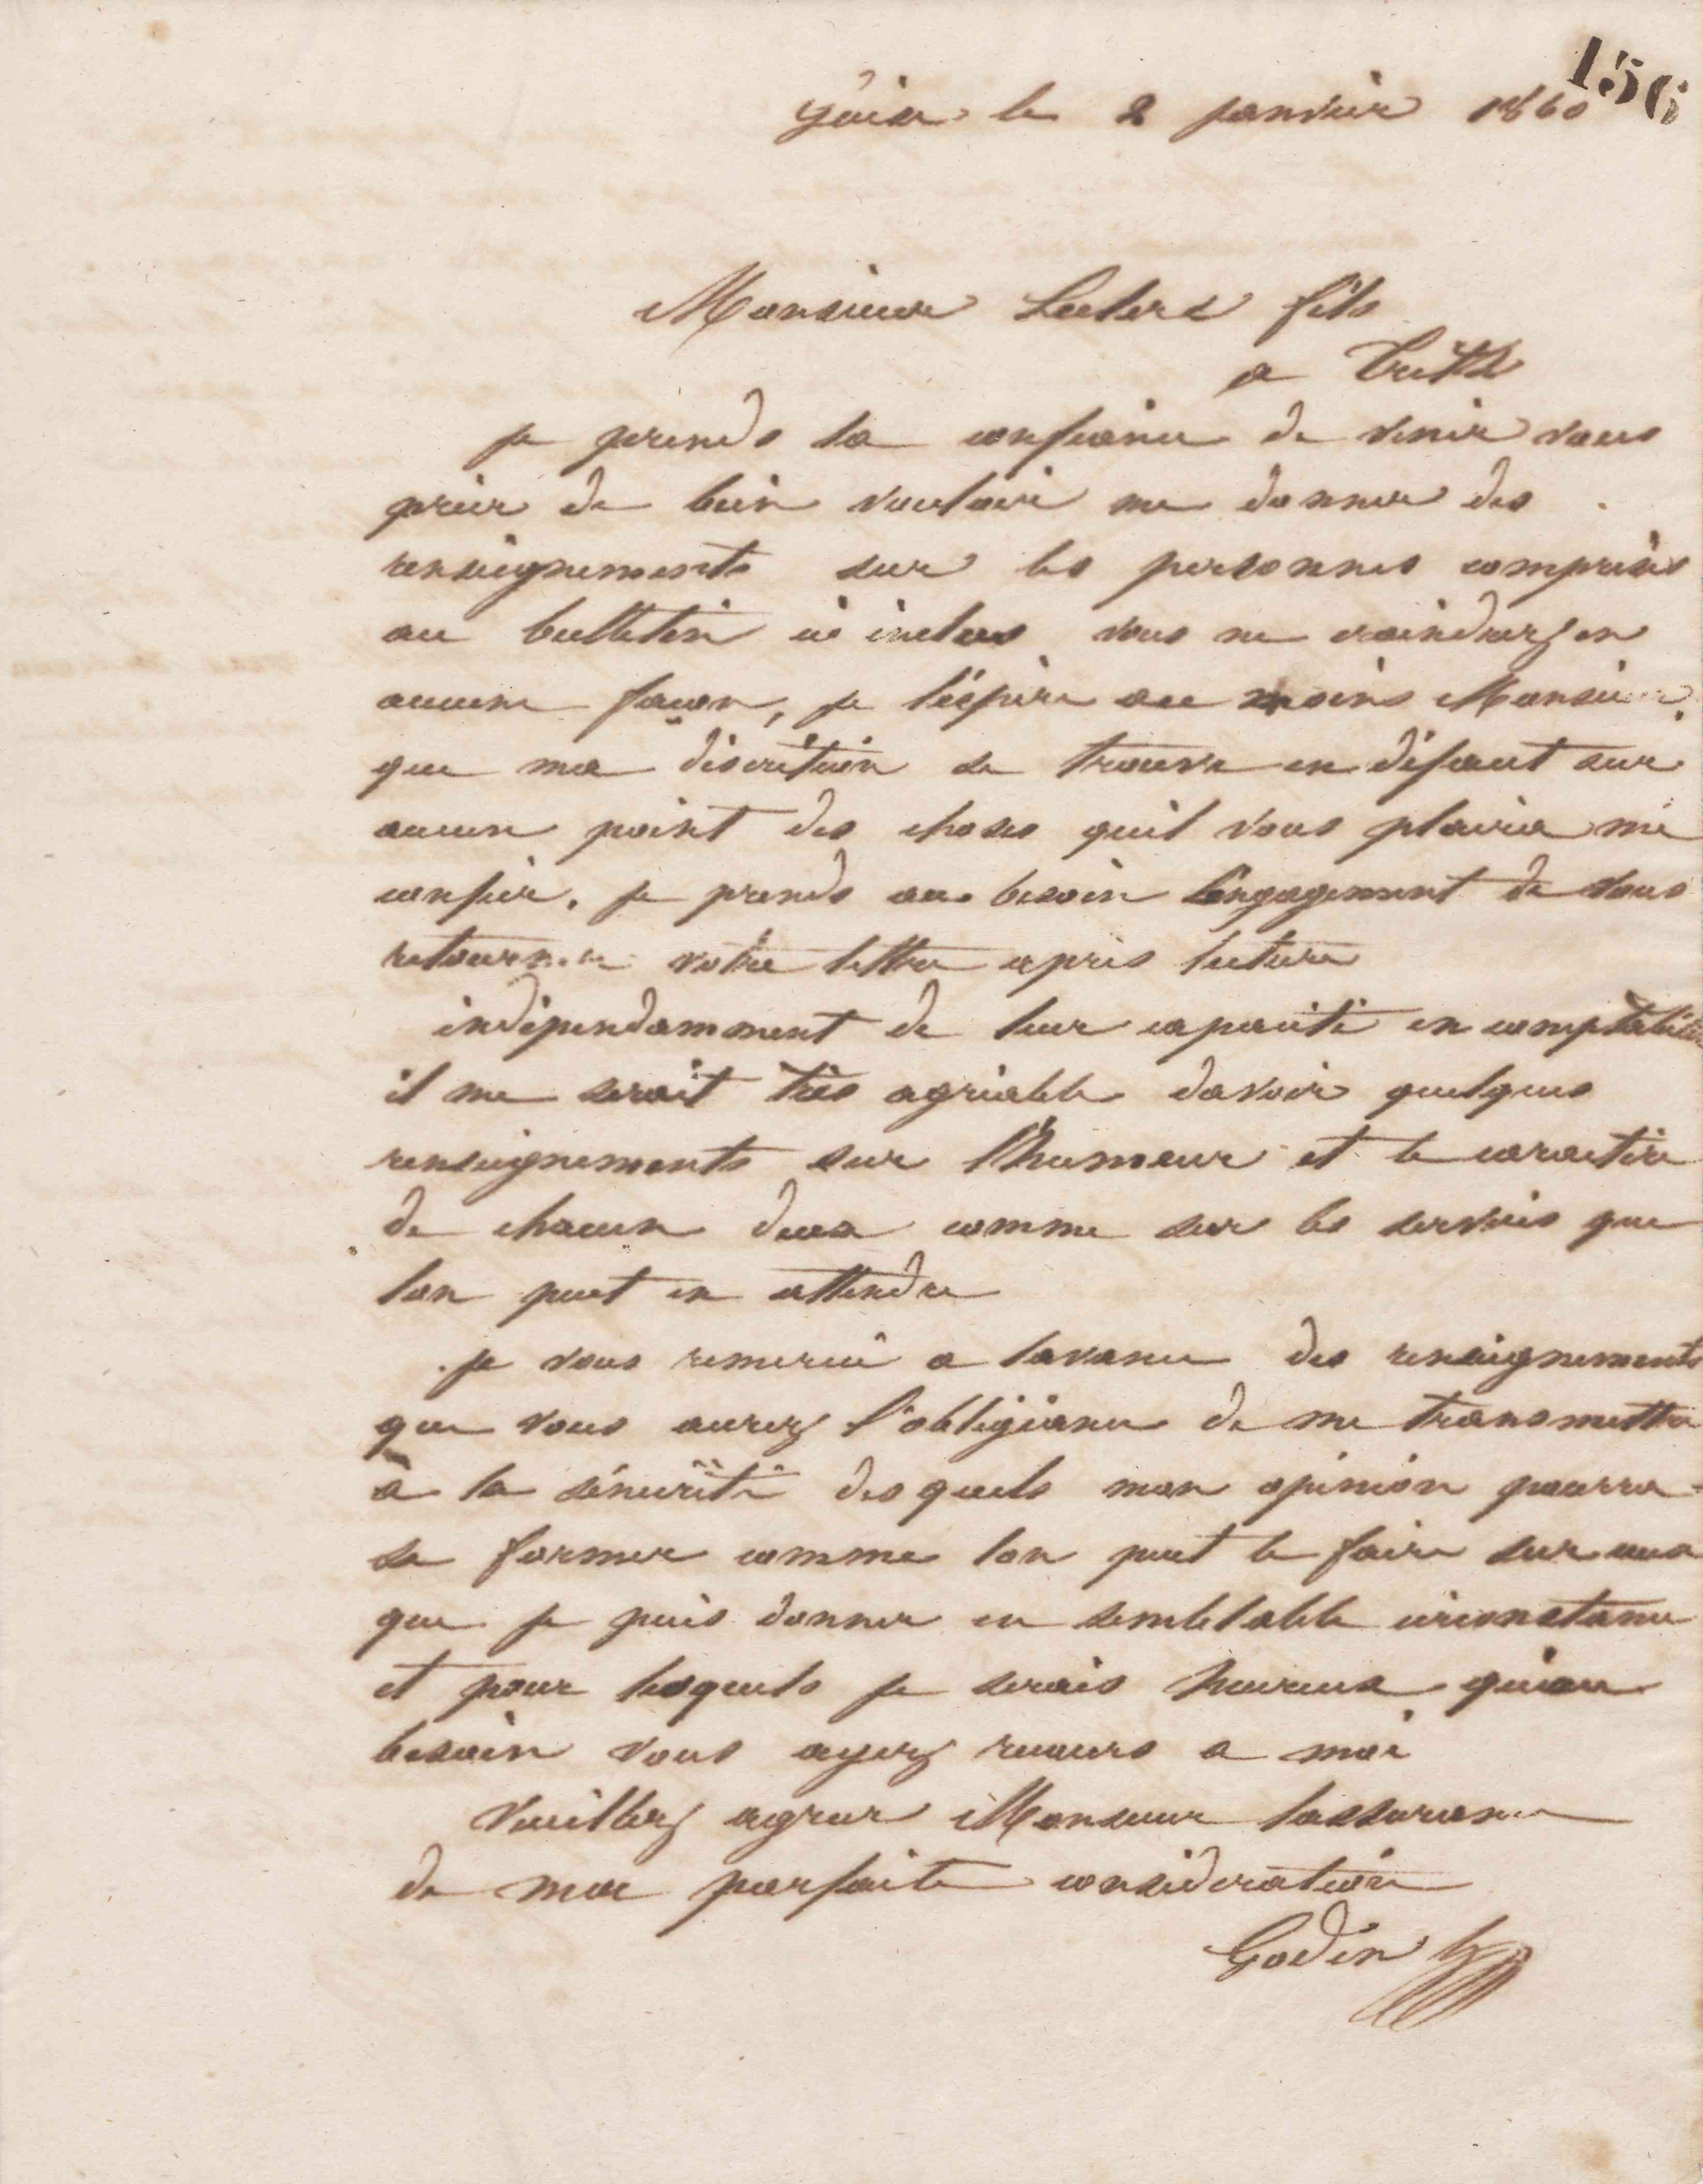 156
Guise le 2 janvier 1860
Monsieur Leclerc fils
a Trith
je prends la confiance de venir vous
prier de bien vouloir me donner des
renseignements sur les personnes comprises
au bulletin ci inclus vous ne craindrez en
aucune façon, je l'éspère au moins Monsieur
que ma discrétion se trouve en défaut sur
aucun point des choses quil vous plaira me
confier. je prends au besoin l'engagement de vous
retourner votre lettre après lecture
indépendamment de leur capacité en comptabilité
il me serait très agréable davoir quelques
renseignements sur l'humeur et le caractère
de chacun deux comme sur les services que
lon peut en attendre
je vous remercie a lavance des renseignements
que vous aurez l'obligeance de me transmettre
à la sincérité desquels mon opinion pourra
se former comme lon peut le faire sur ceux
que je puis donner en semblable circonstance
et pour lesquels je serais heureux quau
besoin vous ayez recours a moi
Veuillez agréer Monsieur lassurance
de ma parfaite considération
Godin